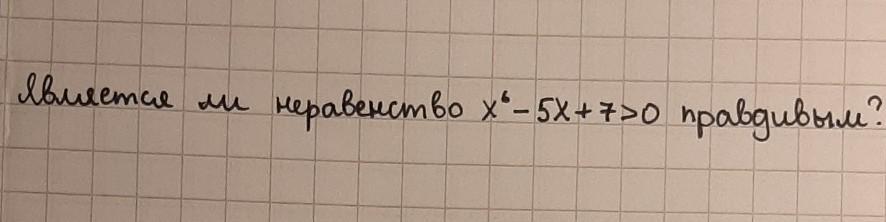 Является ли неравенство x⁶ - 5x + 7 > 0 правдивым?